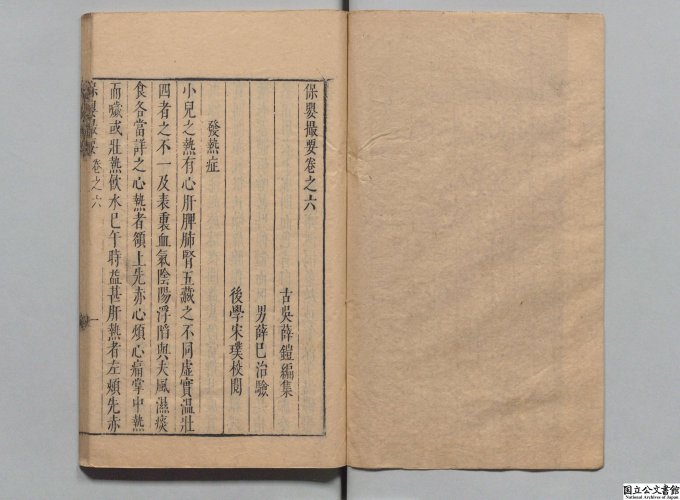 保嬰撮要卷之六
古吳薛鎧編集
男薛巳治驗
後學宋璞校閱
發熱症
小兒之熱有心肝脾肺腎五藏之不同虛實溫壯
四者之不一及表裏血氣陰陽浮陷與夫風濕痰
食各當詳之心熱者額上先赤心煩心痛掌中熱
而噦或壯熱飲水巳午時益甚肝熱者左頰先赤
保嬰撮要 卷之六
一
国立公文書館
National Archives of Japan